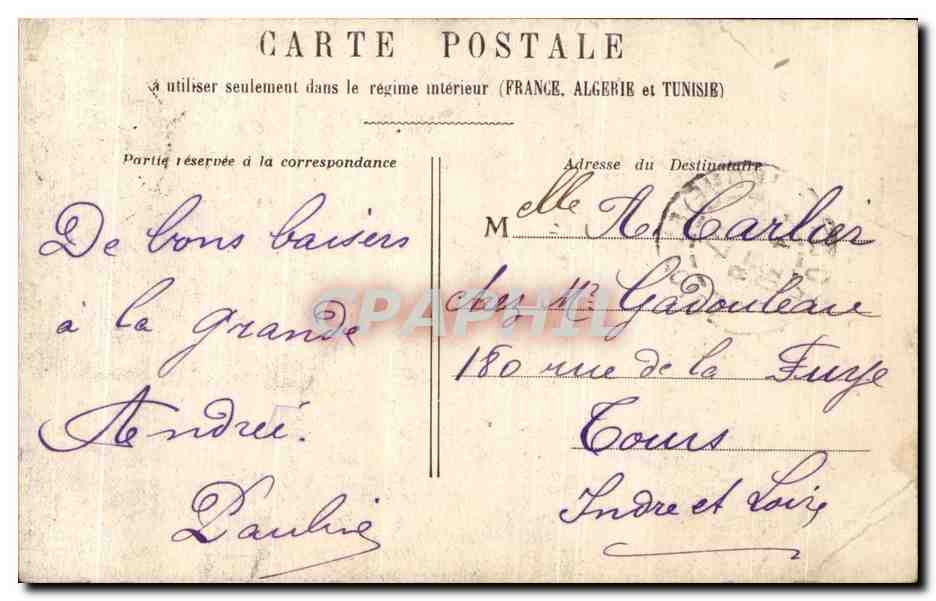 CARTE POSTALE
à utiliser seulement dans le régime intérieur (FRANCE, ALGERIE et TUNISIE)
Partie réservée à la correspondance
De bons baisers
à la grande
Andrée.
Pauline
Adresse du Destinataire
Melle A. Carlier
chez Mr Gadouleau
180 rue de la Fuye
Tours
Indre et Loire
CPAPHIL